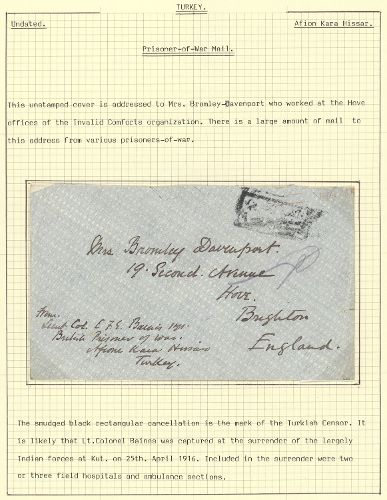 TURKEY.
Undated. Afion Kara Hissar.
Prisoner-of-War Mail.
This unstamped cover is addressed to Mrs. Bromley-Davenport who worked at the Hove
offices of the Invalid Comforts organization. There is a large amount of mail to
this address from various prisoners-of-war.
Mrs Bromley Davenport.
19. Second. Avenue
Hove.
Brighton
England.
From.
Lieut Col. E.F.E. Baines
British Prisoner of War.
Afione Kara Hissar
Turkey.
The smudged black rectangular cancellation is the mark of the Turkish Censor. It
is likely that Lt.Colonel Baines was captured at the surrender of the largely
Indian forces at Kut. on 25th. April 1916. Included in the surrender were two
or three field hospitals and ambulance sections.